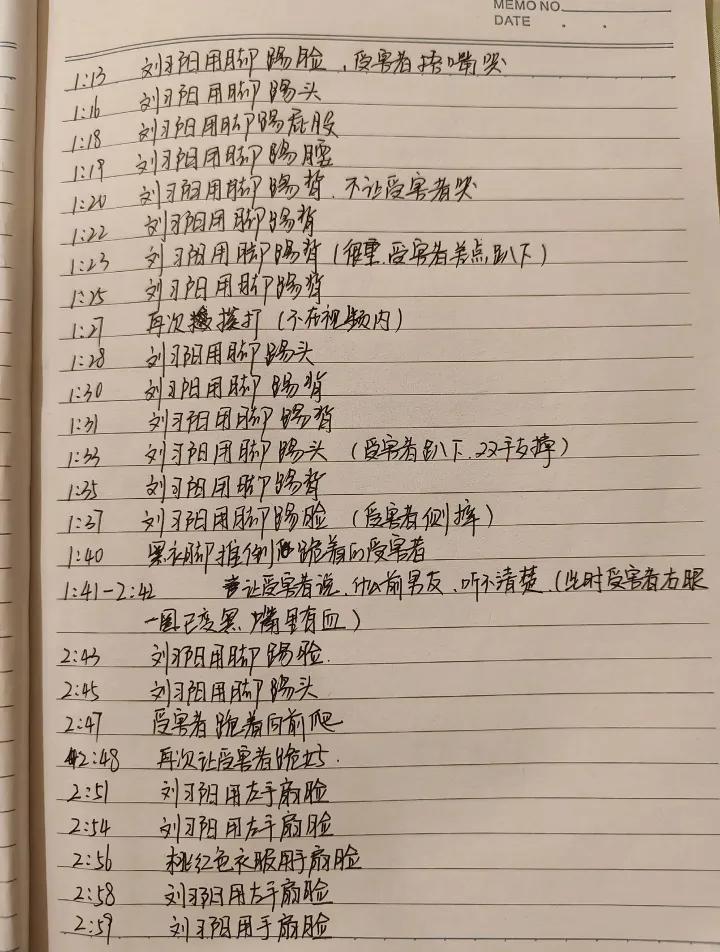 MEMO NO.
DATE . .
1:13 刘习阳用脚踢脸，受害者捂嘴哭
1:16 刘习阳用脚踢头
1:18 刘习阳用脚踢屁股
1:19 刘习阳用脚踢腰
1:20 刘习阳用脚踢背，不让受害者哭
1:22 刘习阳用脚踢背
1:23 刘习阳用脚踢背（很重，受害者差点趴下）
1:25 刘习阳用脚踢背
1:27 再次揍打（不在视频内）
1:28 刘习阳用脚踢头
1:30 刘习阳用脚踢背
1:31 刘习阳用脚踢背
1:33 刘习阳用脚踢头（受害者趴下，双手支撑）
1:35 刘习阳用脚踢背
1:37 刘习阳用脚踢脸（受害者侧摔）
1:40 黑衣脚推倒跪着的受害者
1:41-2:42 让受害者说，什么前男友，听不清楚（此时受害者右眼
一圈已变黑，嘴里有血）
2:43 刘习阳用脚踢脸.
2:45 刘习阳用脚踢头
2:47 受害者跪着向前爬
2:48 再次让受害者跪好.
2:51 刘习阳用左手扇脸
2:54 刘习阳用左手扇脸
2:56 桃红色衣服用手扇脸
2:58 刘习阳用左手扇脸
2:59 刘习阳用手扇脸